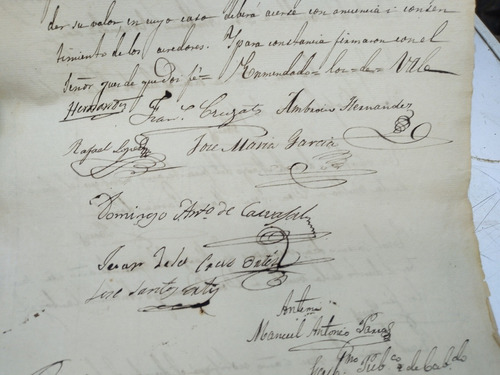 der su valor en cuyo caso deberá acerse con anuencia i consen
timiento de los acredores. I para constancia firmaron con el
Señor Juez de que doy fé = Enmendado = los = de = Vale
Hernandez Fran.co Cruzat Ambrocio Hernandez
Rafael Jose Maria Garcia
Domingo Anto. de Carvajal
Juan de la Cruz Ortiz
Jose Santos Ortiz
Antemi
Manuel Antonio Parias
Sno Pubco. de Cabdo